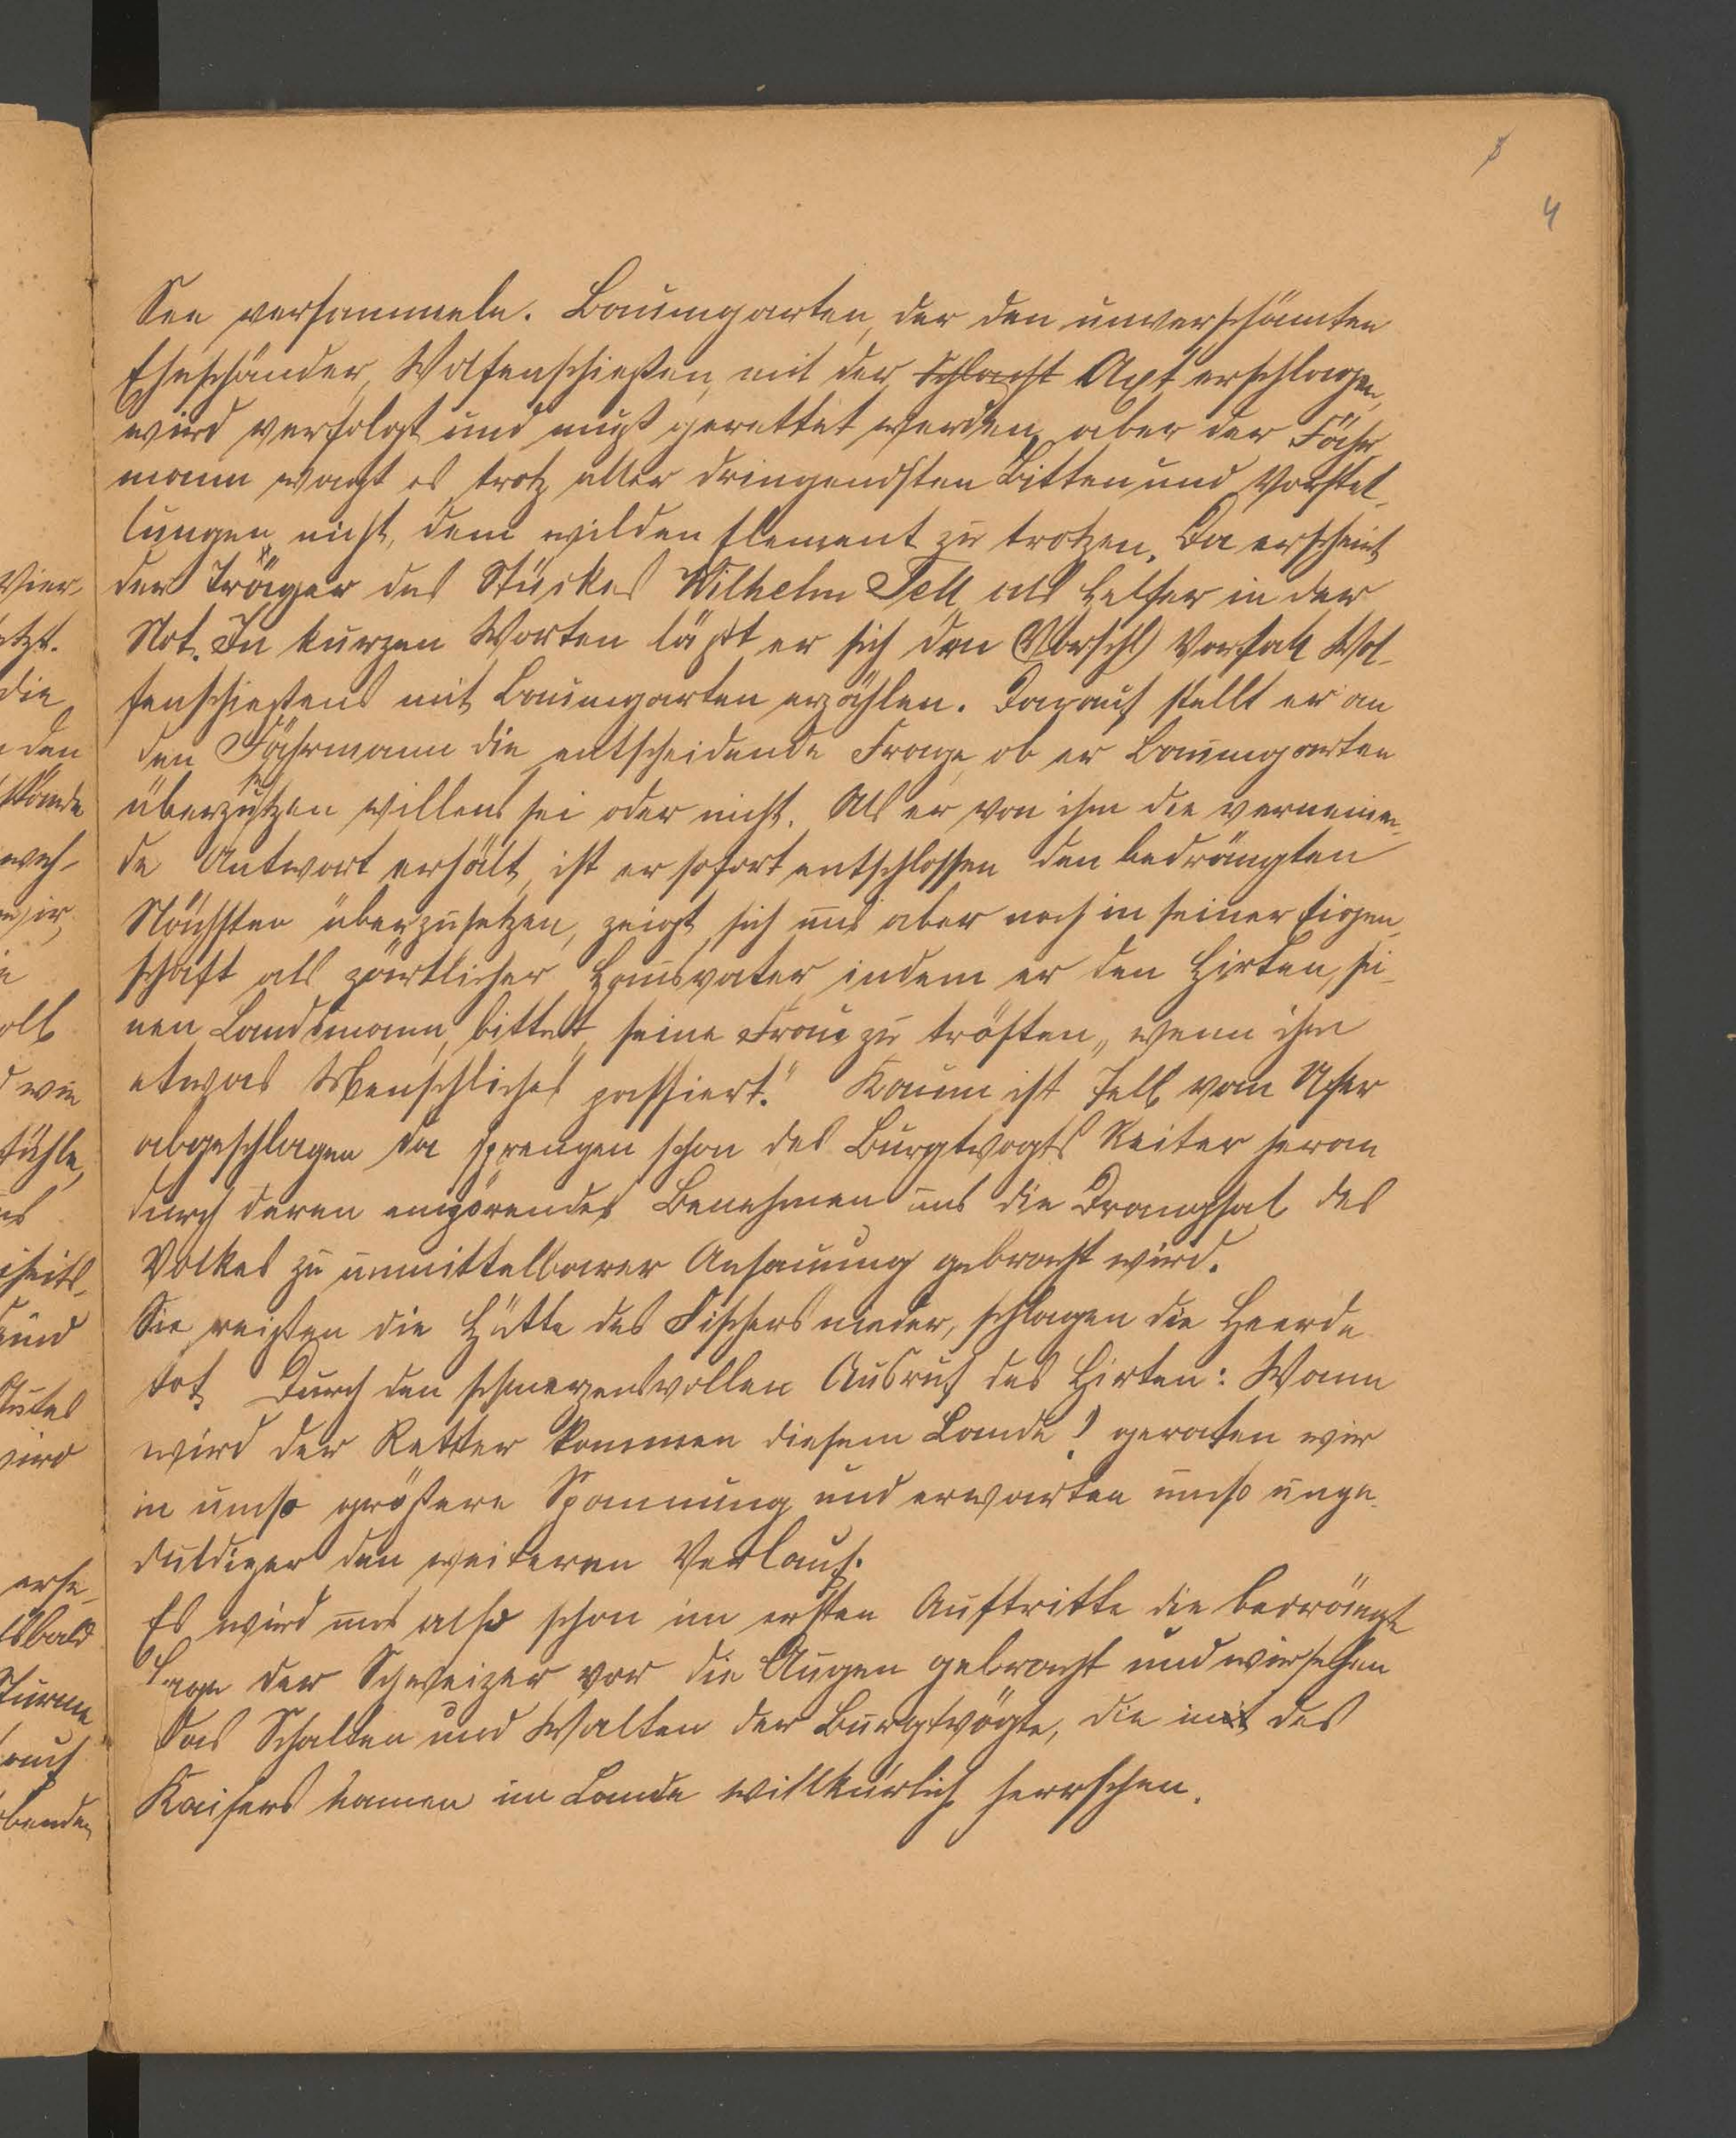 4
See versammeln. Baumgarten, der den unverschämten
Eheschänder, Wolfenschießen, mit der Schlacht Axt erschlagen,
wird verfolgt und muß gerettet werden, aber der Fähr-
mann wagt es trotz aller dringendsten Bitten und Vorstel-
lungen nicht, dem wilden Element zu trotzen. Da erscheint
der Träger des Stückes Wilhelm Tell als Helfer in der
Not. In kurzen Worten läßt er sich den (Vorschl) Vorfall Wol-
fenschießens mit Baumgarten erzählen. Darauf stellt er an
den Fährmann die entscheidende Frage, ob er Baumgarten
überzusetzen willens sei oder nicht. Als er von ihm die verneinen-
de Antwort erhält, ist er sofort entschlossen den bedrängten
Nächsten überzusetzen, zeigt sich uns aber noch in seiner Eigen-
schaft als zärtlicher Hausvater, indem er den Hirten, sei-
nen Landsmann, bittet, seine Frau zu trösten, „wenn ihm
etwas Menschliches passiert." Kaum ist Tell vom Ufer
abgeschlagen da sprengen schon des Burgtvogts Reiter heran
durch deren empörendes Benehmen uns die Drangsal des
Volkes zu unmittelbarer Anschauung gebracht wird.
Sie reißen die Hütte des Fischers nieder, schlagen die Heerde
tot. Durch den schmerzensvollen Ausruf des Hirten: Wann
wird der Retter kommen diesem Lande! geraten wir
in umso größere Spannung und erwarten umso unge-
duldiger den weiteren Verlauf.
Es wird uns also schon im ersten Auftritte die bedrängte
Lage der Schweizer vor die Augen gebracht und wir sehen
das Schalten und Walten der Burgtvögte, die in des
Kaisers Namen im Lande willkürlich herrschen.